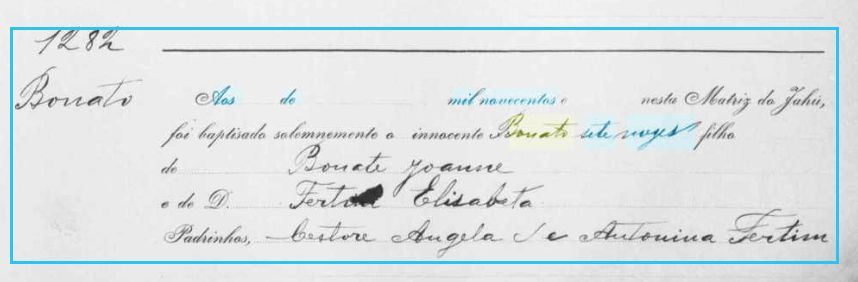 1282
Bonato
Aos de mil novecentos e nesta Matriz do Jahú,
foi baptisado solemnemente o innocente Bonato sete mezes filho
de Bonate Joanne
e de D. Elisabeta
Padrinhos, Angela e Antonina Fertim